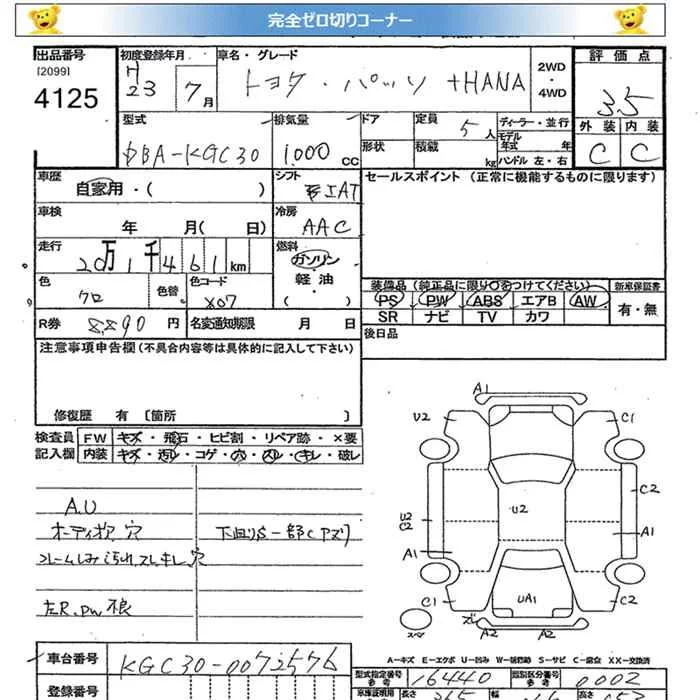 完全ゼロ切りコーナー
出品番号
[2099]
4125
初度登録年月
H23 7月
車名・グレード
トヨタ・パッソ +HANA
2WD
・
4WD
評価点
3.5
外装 内装
C C
型式
DBA-KGC30
排気量
1,000 cc
ドア
定員
5人
ディーラー・並行
モデル年式 年
形状
積載
kg
ハンドル 左・右
車歴
自家用・( )
シフト
AT
セールスポイント (正常に機能するものに限ります)
車検
年 月( 日)
冷房
AAC
走行
20万1千461km
燃料
ガソリン・
軽油
( )
色
クロ
色替
色コード
X07
装備品(純正品に限り○をつけてください)
新車保証書
PS PW ABS エアB AW
有・無
SR ナビ TV カワ
R券 8,890円
名変通知期限 月 日
後日品
注意事項申告欄(不具合内容等は具体的に記入して下さい)
修復歴 有 〔箇所 〕
検査員
記入欄
FW キズ・飛石・ヒビ割・リペア跡・×要
内装 キズ・汚レ・コゲ・穴・スレ・キレ・破レ
A.U
オーディオア 穴
下回りS 一部C
左R.PW不良
A1
U2
C1
C2
U2
U2
C2
A1
A1
UA1
C1
C2
A2 A2
スペ
A-キズ E-エクボ U-凹み W-補修跡 S-サビ C-腐食 XX-交換済
車台番号
KGC30-0072576
型式指定番号
参考
16440
類別区分番号
参考
0002
登録番号
車庫証明用
長さ
幅
高さ